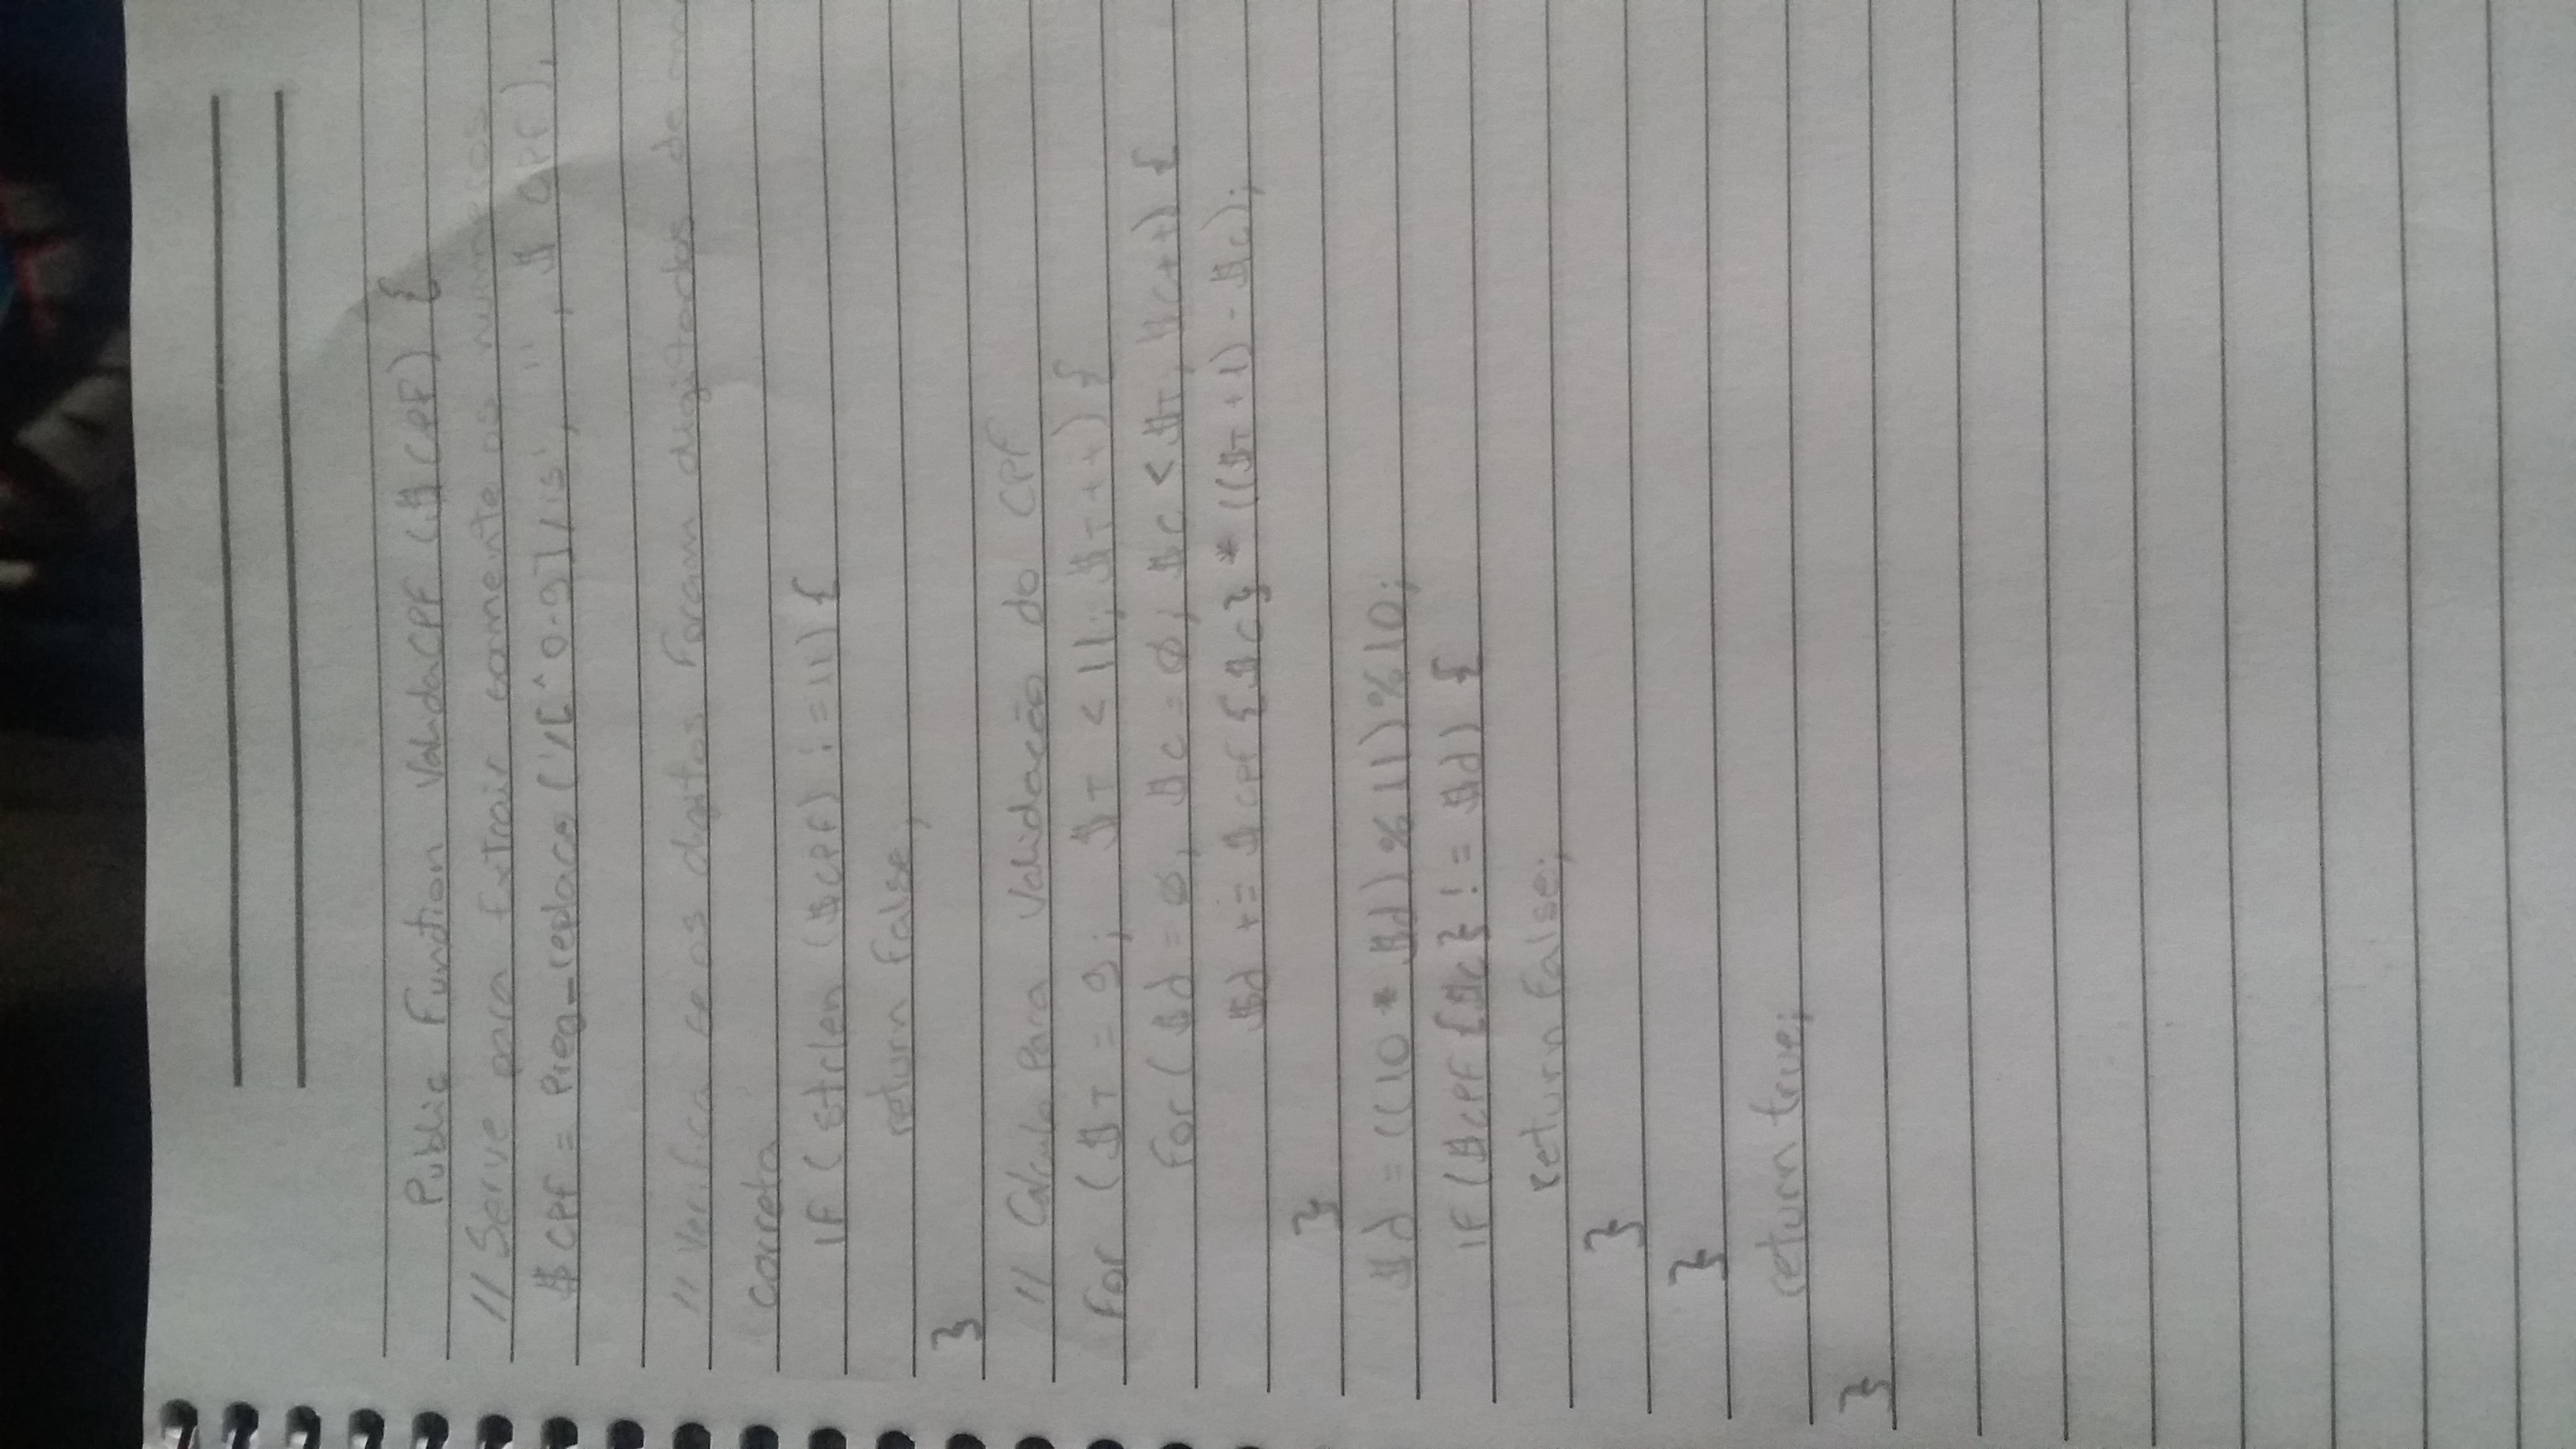 Public Function ValidaCPF ($CPF) {
// Serve para Extrair somente os numeros
$CPF = Preg_replace ('/[^0-9]/is', '', $CPF),
// Verifica se os digitos Foram digitados de
correta
IF (strlen ($CPF) != 11) {
return false;
}
// Calculo Para Validação do CPF
For ($T = 9; $T < 11; $T++) {
For ($d = 0, $c = 0; $c < $T; $c++) {
$d += $CPF{$c} * (($T + 1) - $c);
}
$d = ((10 * $d) % 11) % 10;
IF ($CPF{$c} != $d) {
return false;
}
}
return true;
}